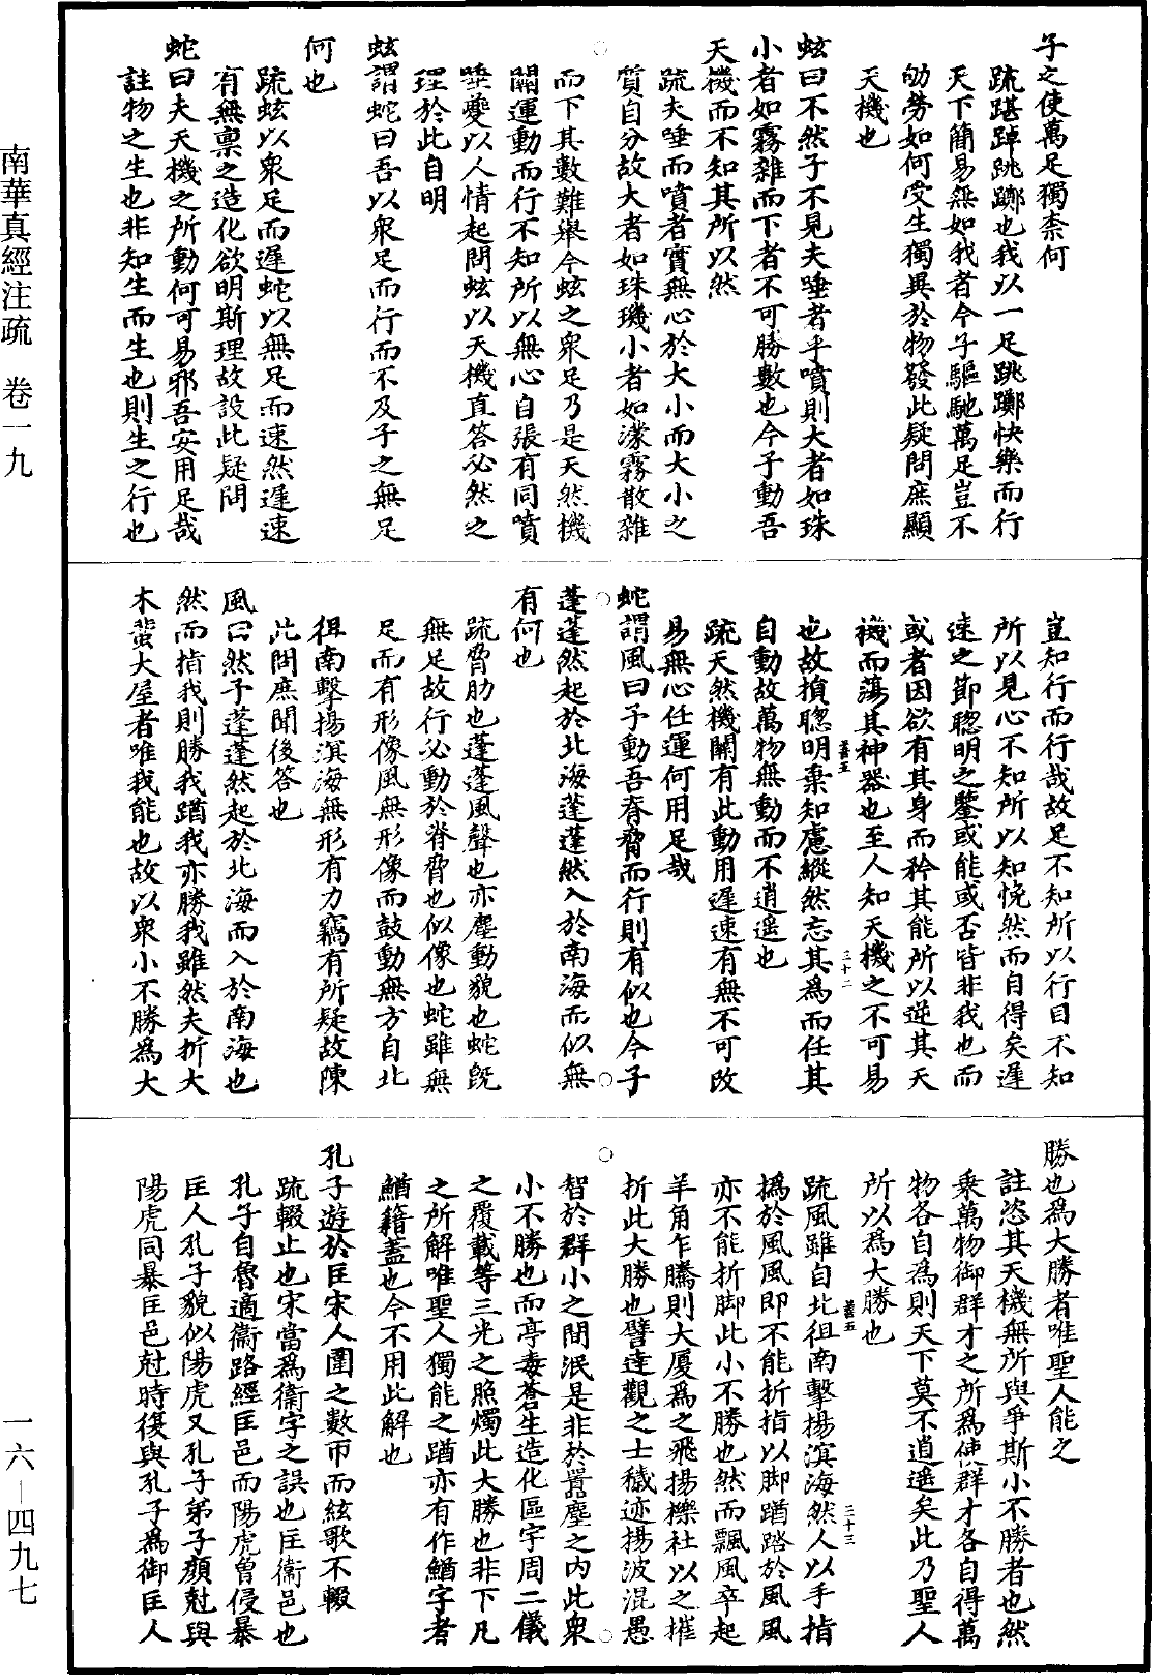 子之使萬足獨柰何
疏踸踔跳躑也我以一足跳躑快樂而行
天下簡易無如我者今子驅馳萬足豈不
劬勞如何受生獨異於物發此疑問庶顯
天機也
蚿曰不然子不見夫唾者乎噴則大者如珠
小者如霧雜而下者不可勝數也今子動吾
天機而不知其所以然
疏夫唾而噴者實無心於大小而大小之
質自分故大者如珠璣小者如濛霧散雜
而下其數難舉今蚿之衆足乃是天然機
關運動而行不知所以無心自張有同噴
唾夔以人情起問蚿以天機直答必然之
理於此自明
蚿謂蛇曰吾以衆足而行而不及子之無足
何也
疏蚿以衆足而遲蛇以無足而速然遲速
有無稟之造化欲明斯理故設此疑問
蛇曰夫天機之所動何可易邪吾安用足哉
註物之生也非知生而生也則生之行也
豈知行而行哉故足不知所以行目不知
所以見心不知所以知恱然而自得矣遲
速之節聦明之鑒或能或否皆非我也而
或者因欲有其身而矜其能所以逆其天
機而蕩其神器也至人知天機之不可易
善五
三十二
也故捐聦明棄知慮縱然忘其爲而任其
自動故萬物無動而不逍遥也
疏天然機關有此動用遲速有無不可改
易無心任運何用足哉
蛇謂風曰予動吾脊脅而行則有似也今子
蓬蓬然起於北海蓬蓬然入於南海而似無
有何也
疏脅肋也蓬蓬風聲也亦塵動貌也蛇旣
無足故行必動於脊脅也似像也蛇雖無
足而有形像風無形像而鼓動無方自北
徂南擊揚溟海無形有力竊有所疑故陳
此問庶聞後答也
風曰然予蓬蓬然起於北海而入於南海也
然而指我則勝我蹹我亦勝我雖然夫折大
木蜚大屋者唯我能也故以衆小不勝爲大
勝也爲大勝者唯聖人能之
註恣其天機無所與爭斯小不勝者也然
乘萬物御群才之所爲使群才各自得萬
物各自爲則天下莫不逍遥矣此乃聖人
所以爲大勝也
善五
三十三
疏風雖自北徂南擊揚溟海然人以手指
撝於風風即不能折指以脚蹹踏於風風
亦不能折脚此小不勝也然而飄風卒起
羊角乍騰則大厦爲之飛揚櫟社以之摧
折此大勝也譬達觀之士穢迹揚波混愚
智於群小之間泯是非於囂塵之内此衆
小不勝也而亭毒蒼生造化區宇周二儀
之覆載等三光之照燭此大勝也非下凡
之所解唯聖人獨能之蹹亦有作鰌字者
鰌籍蓋也今不用此解也
孔子遊於匡宋人圍之數帀而絃歌不輟
疏輟止也宋當爲衞字之誤也匡衞邑也
孔子自魯適衞路經匡邑而陽虎曾侵暴
匡人孔子貌似陽虎又孔子弟子顏尅與
陽虎同暴匡邑尅時復與孔子爲御匡人
南華真經注疏　卷一九
一六—四九七